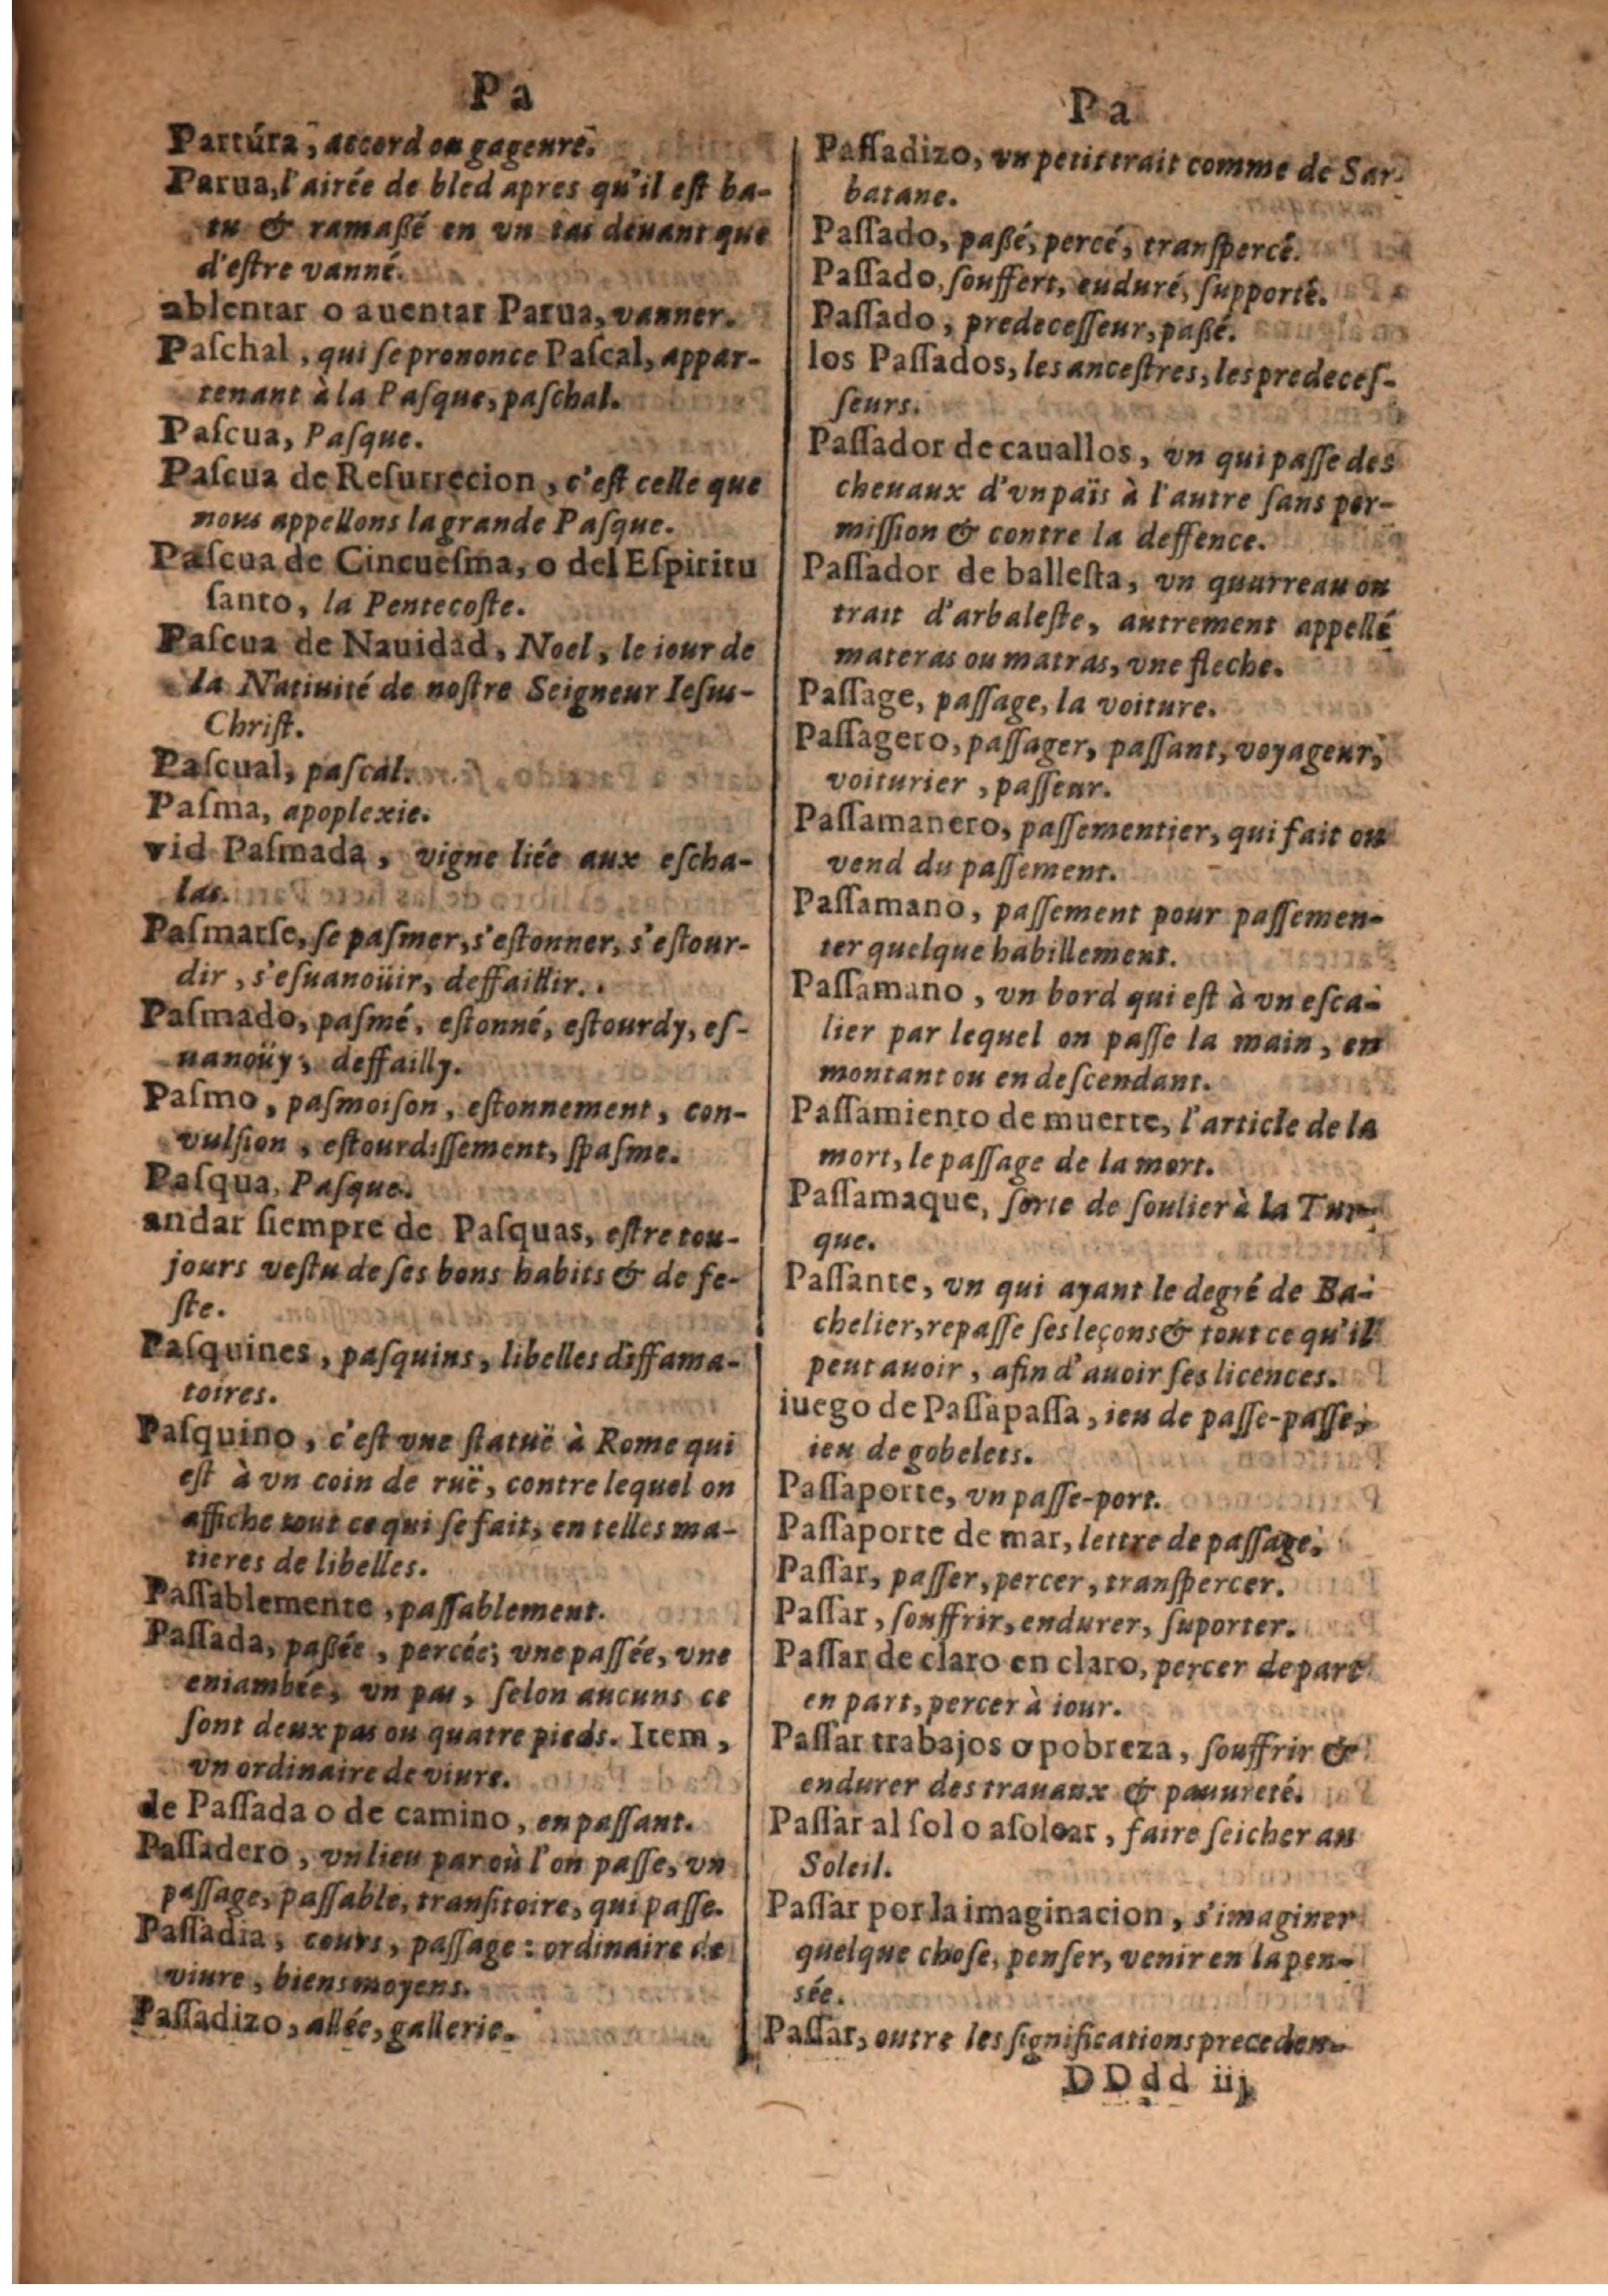 Pa
Partúra, accord ou gageure.
Parua, l'airée de bled apres qu'il est ba-
tu & ramaßé en vn tas deuant que
d'estre vanné.
ablentar o auentar Parua, vanner.
Paſchal, qui ſe prononce Paſcal, appar-
tenant à la Paſque, paſchal.
Paſcua, Paſque.
Paſcua de Reſurrecion, c'eſt celle que
nous appellons la grande Paſque.
Paſcua de Cincueſma, o del Eſpiritu
ſanto, la Pentecoſte.
Paſcua de Nauidad, Noel, le iour de
la Natiuité de noſtre Seigneur Ieſus-
Chriſt.
Paſcual, paſcal.
Paſma, apoplexie.
vid Paſmada, vigne liée aux eſcha-
las.
Paſmarſe, ſe paſmer, s'eſtonner, s'eſtour-
dir, s'eſuanoüir, deffaillir.
Paſmado, paſmé, eſtonné, eſtourdy, eſ-
uanoüy, deffailly.
Paſmo, paſmoiſon, eſtonnement, con-
vulſion, eſtourdiſſement, ſpaſme.
Paſqua, Paſque.
andar ſiempre de Paſquas, eſtre tou-
jours veſtu de ſes bons habits & de fe-
ſte.
Paſquines, paſquins, libelles diffama-
toires.
Paſquino, c'eſt vne ſtatuë à Rome qui
eſt à vn coin de ruë, contre lequel on
affiche tout ce qui ſe fait, en telles ma-
tieres de libelles.
Paſſablemente, paſſablement.
Paſſada, paßée, percée; vne paſſée, vne
eniambée, vn pas, ſelon aucuns ce
ſont deux pas ou quatre pieds. Item,
vn ordinaire de viure.
de Paſſada o de camino, en paſſant.
Paſſadero, vn lieu par où l'on paſſe, vn
paſſage, paſſable, tranſitoire, qui paſſe.
Paſſadia, cours, paſſage: ordinaire de
viure, biens moyens.
Paſſadizo, allée, gallerie.
Pa
Paſſadizo, vn petit trait comme de Sar-
batane.
Paſſado, paßé, percé, tranſpercé.
Paſſado, ſouffert, enduré, ſupporté.
Paſſado, predeceſſeur, paßé.
los Paſſados, les anceſtres, les predeceſ-
ſeurs.
Paſſador de cauallos, vn qui paſſe des
cheuaux d'vn païs à l'autre ſans per-
miſſion & contre la deffence.
Paſſador de balleſta, vn quarreau ou
trait d'arbaleſte, autrement appellé
materas ou matras, vne fleche.
Paſſage, paſſage, la voiture.
Paſſagero, paſſager, paſſant, voyageur,
voiturier, paſſeur.
Paſſamanero, paſſementier, qui fait ou
vend du paſſement.
Paſſamano, paſſement pour paſſemen-
ter quelque habillement.
Paſſamano, vn bord qui eſt à vn eſca-
lier par lequel on paſſe la main, en
montant ou en deſcendant.
Paſſamiento de muerte, l'article de la
mort, le paſſage de la mort.
Paſſamaque, ſorte de ſoulier à la Tur-
que.
Paſſante, vn qui ayant le degré de Ba-
chelier, repaſſe ſes leçons & tout ce qu'il
peut auoir, afin d'auoir ſes licences.
iuego de Paſſapaſſa, ieu de paſſe-paſſe,
ieu de gobelets.
Paſſaporte, vn paſſe-port.
Paſſaporte de mar, lettre de paſſage.
Paſſar, paſſer, percer, tranſpercer.
Paſſar, ſouffrir, endurer, ſuporter.
Paſſar de claro en claro, percer de part
en part, percer à iour.
Paſſar trabajos o pobreza, ſouffrir &
endurer des trauaux & pauureté.
Paſſar al ſol o aſolear, faire ſeicher au
Soleil.
Paſſar por la imaginacion, s'imaginer
quelque choſe, penſer, venir en la pen-
sée.
Paſſar, outre les ſignifications preceden-
DDdd iij